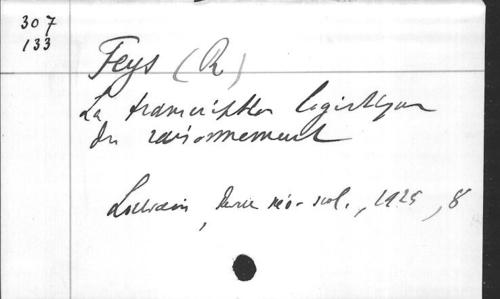 307
133
Feys (R)
La transcription logistique
du raisonnement
Louvain, Revue néo-scol., 1925, 8